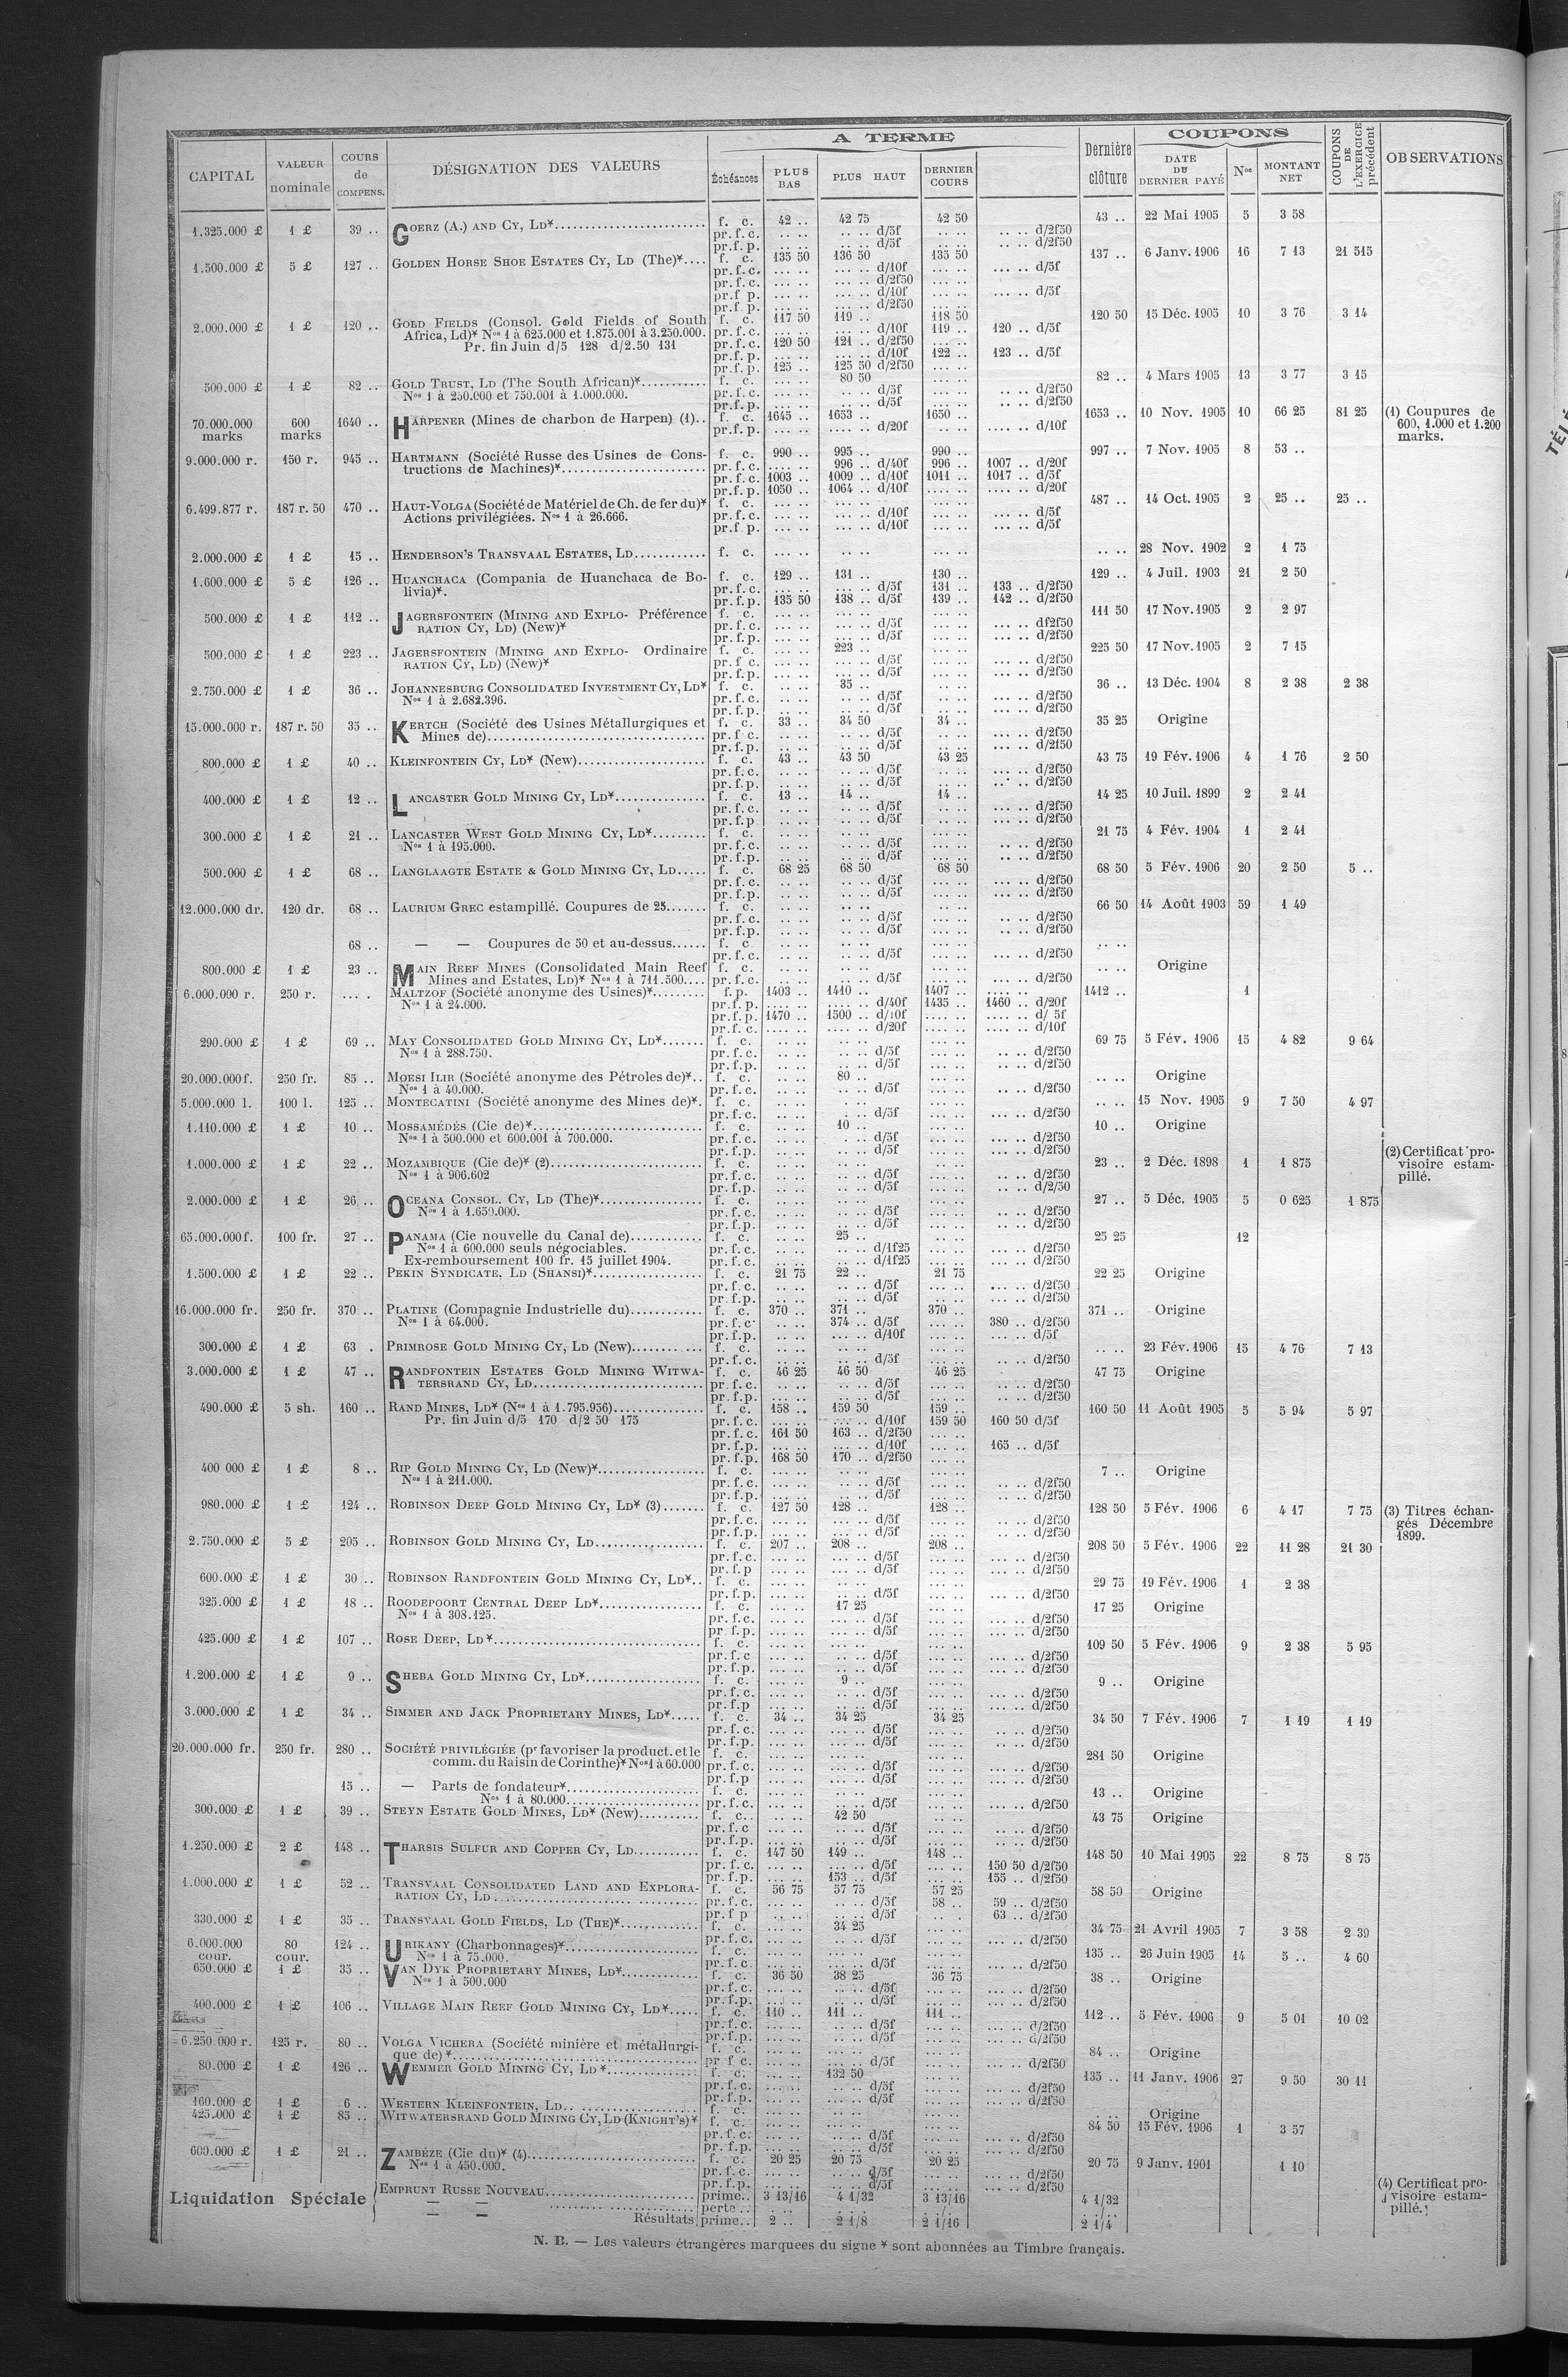 A TERME
COUPONS
CAPITAL | VALEUR nominale | COURS de COMPENS. | DÉSIGNATION DES VALEURS | Échéances | PLUS BAS | PLUS HAUT | DERNIER COURS | Dernière clôture | DATE DU DERNIER PAYÉ | Nos | MONTANT NET | COUPONS DE L'EXERCICE précédent | OBSERVATIONS
1.325.000 £ 1 £ 39 .. GOERZ (A.) AND CY, LD* f. c. 42 .. 42 75 42 50 43 .. 22 Mai 1905 5 3 58
pr. f. c. .. .. .. .. d/5f .. .. .. .. d/2f50
pr. f. p. .. .. .. .. d/5f .. .. .. .. d/2f50
1.500.000 £ 5 £ 127 .. GOLDEN HORSE SHOE ESTATES CY, LD (The)* f. c. 135 50 136 50 135 50 137 .. 6 Janv. 1906 16 7 13 21 515
pr. f. c. ... .. ... .. d/10f ... .. ... .. d/5f
pr. f. c. ... .. ... .. d/2f50 ... ..
pr. f p. ... .. ... .. d/10f ... .. ... .. d/5f
pr. f p. ... .. ... .. d/2f50 ... ..
2.000.000 £ 1 £ 120 .. GOLD FIELDS (Consol. Gold Fields of South f. c. 117 50 119 .. 118 50 120 50 15 Déc. 1905 10 3 76 3 14
Africa, Ld)* Nos 1 à 625.000 et 1.875.001 à 3.250.000. pr. f. c. ... .. ... .. d/10f 119 .. 120 .. d/5f
Pr. fin Juin d/5 128 d/2.50 131 pr. f. c. 120 50 121 .. d/2f50 ... ..
pr. f. p. ... .. ... .. d/10f 122 .. 123 .. d/5f
pr. f. p. 125 .. 125 50 d/2f50 ... ..
500.000 £ 1 £ 82 .. GOLD TRUST, LD (The South African)* f. c. ... .. 80 50 ... .. 82 .. 4 Mars 1905 13 3 77 3 15
Nos 1 à 250.000 et 750.001 à 1.000.000. pr. f. c. ... .. .. .. d/5f ... .. .. .. d/2f50
pr. f. p. ... .. .. .. d/5f ... .. .. .. d/2f50
70.000.000 marks 600 marks 1640 .. HARPENER (Mines de charbon de Harpen) (1) f. c. 1645 .. 1653 .. 1650 .. 1653 .. 10 Nov. 1905 10 66 25 81 25 (1) Coupures de 600, 1.000 et 1.200 marks.
pr. f. p. .... .. .... .. d/20f .... .. .... .. d/10f
9.000.000 r. 150 r. 945 .. HARTMANN (Société Russe des Usines de Cons- f. c. 990 .. 995 .. 990 .. 997 .. 7 Nov. 1905 8 53 ..
tructions de Machines)* pr. f. c. .... .. 996 .. d/40f 996 .. 1007 .. d/20f
pr. f. c. 1003 .. 1009 .. d/10f 1011 .. 1017 .. d/5f
pr. f. p. 1050 .. 1064 .. d/10f .... .. .... .. d/20f
6.499.877 r. 187 r. 50 470 .. HAUT-VOLGA (Société de Matériel de Ch. de fer du)* f. c. ... .. ... .. ... .. 487 .. 14 Oct. 1905 2 25 .. 25 ..
Actions privilégiées. Nos 1 à 26.666. pr. f. c. ... .. ... .. d/10f ... .. ... .. d/5f
pr. f p. ... .. ... .. d/10f ... .. ... .. d/5f
2.000.000 £ 1 £ 15 .. HENDERSON'S TRANSVAAL ESTATES, LD f. c. ... .. .. .. ... .. .. .. 28 Nov. 1902 2 1 75
1.600.000 £ 5 £ 126 .. HUANCHACA (Compania de Huanchaca de Bo- f. c. 129 .. 131 .. 130 .. 129 .. 4 Juil. 1903 21 2 50
livia)*. pr. f. c. ... .. ... .. d/5f 131 .. 133 .. d/2f50
pr. f. p. 135 50 138 .. d/5f 139 .. 142 .. d/2f50
500.000 £ 1 £ 112 .. JAGERSFONTEIN (MINING AND EXPLO- Préférence f. c. ... .. ... .. ... .. 111 50 17 Nov. 1905 2 2 97
RATION CY, LD) (New)* pr. f. c. ... .. ... .. d/5f ... .. df2f50
pr. f. p. ... .. ... .. d/5f ... .. d/2f50
500.000 £ 1 £ 223 .. JAGERSFONTEIN (MINING AND EXPLO- Ordinaire f. c. ... .. 223 .. ... .. 225 50 17 Nov. 1905 2 7 15
RATION CY, LD) (New)* pr. f c. ... .. ... .. d/5f ... .. ... .. d/2f50
pr. f. p. ... .. ... .. d/5f ... .. ... .. d/2f50
2.750.000 £ 1 £ 36 .. JOHANNESBURG CONSOLIDATED INVESTMENT CY, LD* f. c. .. .. 35 .. .. .. 36 .. 13 Déc. 1904 8 2 38 2 38
Nos 1 à 2.682.396. pr. f. c. .. .. .. .. d/5f .. .. ... .. d/2f50
pr. f. p. .. .. .. .. d/5f .. .. ... .. d/2f50
15.000.000 r. 187 r. 50 35 .. KERTCH (Société des Usines Métallurgiques et f. c. 33 .. 34 50 34 .. 35 25 Origine
Mines de) pr. f c. .. .. .. .. d/5f .. .. ... .. d/2f50
pr. f. p. .. .. .. .. d/5f .. .. ... .. d/2f50
800.000 £ 1 £ 40 .. KLEINFONTEIN CY, LD* (New) f. c. 43 .. 43 50 43 25 43 75 19 Fév. 1906 4 1 76 2 50
pr. f. c. .. .. .. .. d/5f .. .. ... .. d/2f50
pr. f. p. .. .. .. .. d/5f .. .. ... .. d/2f50
400.000 £ 1 £ 12 .. LANCASTER GOLD MINING CY, LD* f. c. 13 .. 14 .. 14 .. 14 25 10 Juil. 1899 2 2 41
pr. f. c. .. .. .. .. d/5f .. .. .. .. d/2f50
pr. f. p. .. .. .. .. d/5f .. .. .. .. d/2f50
300.000 £ 1 £ 21 .. LANCASTER WEST GOLD MINING CY, LD* f. c. .. .. .. .. ... .. 21 75 4 Fév. 1904 1 2 41
Nos 1 à 195.000. pr. f. c. .. .. .. .. d/5f ... .. .. .. d/2f50
pr. f. p. .. .. .. .. d/5f ... .. .. .. d/2f50
500.000 £ 1 £ 68 .. LANGLAAGTE ESTATE & GOLD MINING CY, LD f. c. 68 25 68 50 68 50 68 50 5 Fév. 1906 20 2 50 5 ..
pr. f. c. .. .. .. .. d/5f .. .. .. .. d/2f50
pr. f. p. .. .. .. .. d/5f .. .. .. .. d/2f50
12.000.000 dr. 120 dr. 68 .. LAURIUM GREC estampillé. Coupures de 25 f. c. .. .. .. .. .. .. 66 50 14 Août 1903 59 1 49
pr. f. c. .. .. .. .. d/5f .. .. .. .. d/2f50
pr. f. p. .. .. .. .. d/5f .. .. .. .. d/2f50
68 .. — — Coupures de 50 et au-dessus f. c .. .. .. .. .. .. .. ..
pr. f. c. .. .. .. .. d/5f .. .. ... .. d/2f50
800.000 £ 1 £ 23 .. MAIN REEF MINES (Consolidated Main Reef f. c. .. .. .. .. .. .. .. .. Origine
Mines and Estates, LD)* Nos 1 à 711.500 pr. f. c. .. .. .. .. d/5f .. .. ... .. d/2f50
6.000.000 r. 250 r. .... . MALTZOF (Société anonyme des Usines)* f. p. 1403 .. 1410 .. 1407 .. .... .. 1412 .. 1
Nos 1 à 24.000. pr. f. p. .... .. .... .. d/40f 1435 .. 1460 .. d/20f
pr. f. p. 1470 .. 1500 .. d/10f .... .. .... .. d/ 5f
pr. f. c. .... .. .... .. d/20f .... .. .... .. d/10f
290.000 £ 1 £ 69 .. MAY CONSOLIDATED GOLD MINING CY, LD* f. c. .. .. .. .. ... .. 69 75 5 Fév. 1906 15 4 82 9 64
Nos 1 à 288.750. pr. f. c. .. .. .. .. d/5f ... .. .. .. d/2f50
pr. f. p. .. .. .. .. d/5f ... .. .. .. d/2f50
20.000.000f. 250 fr. 85 .. MOESI ILIR (Société anonyme des Pétroles de)* f. c. .. .. 80 .. .. .. .. .. Origine
Nos 1 à 40.000. pr. f. c. .. .. .. .. d/5f .. .. .. .. d/2f50
5.000.000 l. 100 l. 125 .. MONTECATINI (Société anonyme des Mines de)* f. c. .. .. . .. .. .. .. .. 15 Nov. 1905 9 7 50 4 97
pr. f. c. .. .. . .. d/5f .. .. ... .. d/2f50
1.110.000 £ 1 £ 10 .. MOSSAMÉDÈS (Cie de)* f. c. .. .. 10 .. .. .. 10 .. Origine
Nos 1 à 500.000 et 600.001 à 700.000. pr. f. c. .. .. . .. d/5f .. .. ... .. d/2f50
pr. f. p. .. .. .. .. d/5f .. .. ... .. d/2f50
1.000.000 £ 1 £ 22 .. MOZAMBIQUE (Cie de)* (2) f. c. .. .. .. .. .. .. 23 .. 2 Déc. 1898 1 1 875 (2) Certificat provisoire estampillé.
Nos 1 à 906.602 pr. f. c. .. .. .. .. d/5f .. .. ... .. d/2f50
pr. f. p. .. .. .. .. d/5f .. .. ... .. d/2/50
2.000.000 £ 1 £ 26 .. OCEANA CONSOL. CY, LD (The)* f. c. .. .. .. .. .. .. 27 .. 5 Déc. 1905 5 0 625 1 875
Nos 1 à 1.650.000. pr. f. c. .. .. .. .. d/5f .. .. ... .. d/2f50
pr. f. p. .. .. .. .. d/5f .. .. ... .. d/2f50
65.000.000f. 100 fr. 27 .. PANAMA (Cie nouvelle du Canal de) f. c. .. .. 25 .. .. .. 25 25 12
Nos 1 à 600.000 seuls négociables. pr. f. c. .. .. .. .. d/1f25 ... .. ... .. d/2f50
Ex-remboursement 100 fr. 15 juillet 1904. pr. f. c. .. .. .. .. d/1f25 ... .. ... .. d/2f50
1.500.000 £ 1 £ 22 .. PEKIN SYNDICATE, LD (SHANSI)* f. c. 21 75 22 .. 21 75 22 25 Origine
pr. f. c. .. .. .. .. d/5f .. .. ... .. d/2f50
pr. f. p. .. .. .. .. d/5f .. .. ... .. d/2f50
16.000.000 fr. 250 fr. 370 .. PLATINE (Compagnie Industrielle du) f. c. 370 .. 371 .. 370 .. 371 .. Origine
Nos 1 à 64.000. pr. f. c. .. .. 374 .. d/5f ... .. 380 .. d/2f50
pr. f. p. .. .. ... .. d/10f ... .. ... .. d/5f
300.000 £ 1 £ 63 . PRIMROSE GOLD MINING CY, LD (New) f. c. .. .. .. .. ... .. ... .. 23 Fév. 1906 15 4 76 7 13
pr. f. c. .. .. .. .. d/5f ... .. .. .. d/2f50
3.000.000 £ 1 £ 47 .. RANDFONTEIN ESTATES GOLD MINING WITWA- f. c. 46 25 46 50 46 25 47 75 Origine
TERSRAND CY, LD pr. f. c. .. .. .. .. d/5f .. .. .. .. d/2f50
pr. f. p. .. .. .. .. d/5f .. .. .. .. d/2f50
490.000 £ 5 sh. 160 .. RAND MINES, LD* (Nos 1 à 1.795.956) f. c. 158 .. 159 50 159 .. 160 50 11 Août 1905 5 5 94 5 97
Pr. fin Juin d/5 170 d/2 50 175 pr. f. c. ... .. ... .. d/10f 159 50 160 50 d/5f
pr. f. c. 161 50 163 .. d/2f50 ... ..
pr. f. p. ... .. ... .. d/10f ... .. 165 .. d/5f
pr. f. p. 168 50 170 .. d/2f50 ... ..
400 000 £ 1 £ 8 .. RIP GOLD MINING CY, LD (New)* f. c. ... .. .. .. ... .. 7 .. Origine
Nos 1 à 211.000. pr. f. c. ... .. .. .. d/5f ... .. .. .. d/2f50
pr. f. p. ... .. .. .. d/5f ... .. .. .. d/2f50
980.000 £ 1 £ 124 .. ROBINSON DEEP GOLD MINING CY, LD* (3) f. c. 127 50 128 .. 128 .. 128 50 5 Fév. 1906 6 4 17 7 75 (3) Titres échangés Décembre 1899.
pr. f. c. ... .. ... .. d/5f ... .. .. .. d/2f50
pr. f. p. ... .. ... .. d/5f ... .. .. .. d/2f50
2.750.000 £ 5 £ 205 .. ROBINSON GOLD MINING CY, LD f. c. 207 .. 208 .. 208 .. 208 50 5 Fév. 1906 22 11 28 21 30
pr. f. c. ... .. ... .. d/5f ... .. ... .. d/2f50
pr. f. p ... .. ... .. d/5f ... .. ... .. d/2f50
600.000 £ 1 £ 30 .. ROBINSON RANDFONTEIN GOLD MINING CY, LD* f. c. ... .. .. .. ... .. 29 75 19 Fév. 1906 1 2 38
pr. f. p. ... .. .. .. d/5f ... .. ... .. d/2f50
325.000 £ 1 £ 18 .. ROODEPOORT CENTRAL DEEP LD* f. c. ... .. 17 25 ... .. 17 25 Origine
Nos 1 à 308.125. pr. f. c. ... .. ... .. d/5f ... .. ... .. d/2f50
pr. f. p. ... .. ... .. d/5f ... .. ... .. d/2f50
425.000 £ 1 £ 107 .. ROSE DEEP, LD* f. c. ... .. ... .. ... .. 109 50 5 Fév. 1906 9 2 38 5 95
pr. f. c ... .. ... .. d/5f ... .. ... .. d/2f50
pr. f. p. ... .. ... .. d/5f ... .. ... .. d/2f50
1.200.000 £ 1 £ 9 .. SHEBA GOLD MINING CY, LD* f. c. ... .. 9 .. ... .. 9 .. Origine
pr. f. c. ... .. .. .. d/5f ... .. ... .. d/2f50
pr. f. p ... .. .. .. d/5f ... .. ... .. d/2f50
3.000.000 £ 1 £ 34 .. SIMMER AND JACK PROPRIETARY MINES, LD* f. c. 34 .. 34 25 34 25 34 50 7 Fév. 1906 7 1 19 1 19
pr. f. c. ... .. ... .. d/5f ... .. .. .. d/2f50
pr. f. p. ... .. ... .. d/5f ... .. .. .. d/2f50
20.000.000 fr. 250 fr. 280 .. SOCIÉTÉ PRIVILÉGIÉE (pr favoriser la product. et le f. c. ... .. ... .. ... .. 281 50 Origine
comm. du Raisin de Corinthe)* Nos 1 à 60.000 pr. f. c. ... .. ... .. d/5f ... .. ... .. d/2f50
pr. f. p ... .. ... .. d/5f ... .. ... .. d/2f50
15 .. — Parts de fondateur* f. c. ... .. .. .. ... .. 13 .. Origine
Nos 1 à 80.000 pr. f. c. ... .. .. .. d/5f ... .. ... .. d/2f50
300.000 £ 1 £ 39 .. STEYN ESTATE GOLD MINES, LD* (New) f. c. .. .. 42 50 .. .. 43 75 Origine
pr. f. c ... .. ... .. d/5f ... .. .. .. d/2f50
pr. f. p. ... .. ... .. d/5f ... .. .. .. d/2f50
1.250.000 £ 2 £ 148 .. THARSIS SULFUR AND COPPER CY, LD f. c. 147 50 149 .. 148 .. 148 50 10 Mai 1905 22 8 75 8 75
pr. f. c. ... .. ... .. d/5f ... .. 150 50 d/2f50
pr. f. p. ... .. 153 .. d/5f ... .. 155 .. d/2f50
1.000.000 £ 1 £ 52 .. TRANSVAAL CONSOLIDATED LAND AND EXPLORA- f. c. 56 75 57 75 57 25 58 50 Origine
RATION CY, LD pr. f. c. ... .. .. .. d/5f 58 .. 59 .. d/2f50
pr. f p .. .. .. .. d/5f .. . 63 .. d/2f50
330.000 £ 1 £ 35 .. TRANSVAAL GOLD FIELDS, LD (THE)* f. c. ... .. 34 25 ... .. 34 75 21 Avril 1905 7 3 58 2 39
pr. f. c. ... .. ... .. d/5f ... .. ... .. d/2f50
6.000.000 cour. 80 cour. 124 .. URIKANY (Charbonnages)* f. c. ... .. ... .. ... .. 135 .. 26 Juin 1905 14 5 .. 4 60
Nos 1 à 75.000. pr. f. c. ... .. ... .. d/5f ... .. ... .. d/2f50
650.000 £ 1 £ 35 .. VAN DYK PROPRIETARY MINES, LD* f. c. 36 50 38 25 36 75 38 .. Origine
Nos 1 à 500.000 pr. f. c. ... .. ... .. d/5f ... .. ... .. d/2f50
pr. f. p. ... .. ... .. d/5f ... .. ... .. d/2f50
400.000 £ 1 £ 106 .. VILLAGE MAIN REEF GOLD MINING CY, LD* f. c. 110 .. 111 .. 111 .. 112 .. 5 Fév. 1906 9 5 01 10 02
pr. f. c. ... .. ... .. d/5f ... .. ... .. d/2f50
pr. f. p. ... .. ... .. d/5f ... .. ... .. d/2f50
6.250 000 r. 125 r. 80 .. VOLGA VICHERA (Société minière et métallurgi- f. c. ... .. ... .. ... .. 84 .. Origine
que de)* pr f c. ... .. ... .. d/5f ... .. ... .. d/2f50
80.000 £ 1 £ 126 .. WEMMER GOLD MINING CY, LD* f. c. ... .. 132 50 ... .. 135 .. 11 Janv. 1906 27 9 50 30 11
pr. f. c. ... .. ... .. d/5f ... .. ... .. d/2f50
pr. f. p. ... .. ... .. d/5f ... .. ... .. d/2f50
160.000 £ 1 £ 6 .. WESTERN KLEINFONTEIN, LD f. c. ... .. ... .. ... .. . .. Origine
425.000 £ 1 £ 85 .. WITWATERSRAND GOLD MINING CY, LD (KNIGHT'S)* f. c. ... .. ... .. ... .. 84 50 15 Fév. 1906 1 3 57
pr. f. c. ... .. ... .. d/5f ... .. ... .. d/2f50
pr. f. p. ... .. ... .. d/5f ... .. ... .. d/2f50
600.000 £ 1 £ 21 .. ZAMBÈZE (Cie du)* (4) f. c. 20 25 20 75 20 25 20 75 9 Janv. 1901 1 10
Nos 1 à 450.000. pr. f. c. ... .. ... .. d/5f ... .. ... .. d/2f50
pr. f. p. ... .. ... .. d/5f ... .. ... .. d/2f50 (4) Certificat provisoire estampillé.
Liquidation Spéciale EMPRUNT RUSSE NOUVEAU prime.. 3 13/16 4 1/32 3 13/16 4 1/32
— — perte ..
— — Résultats prime.. 2 .. 2 1/8 2 1/16 2 1/4
N. B. — Les valeurs étrangères marquees du signe * sont abonnées au Timbre français.